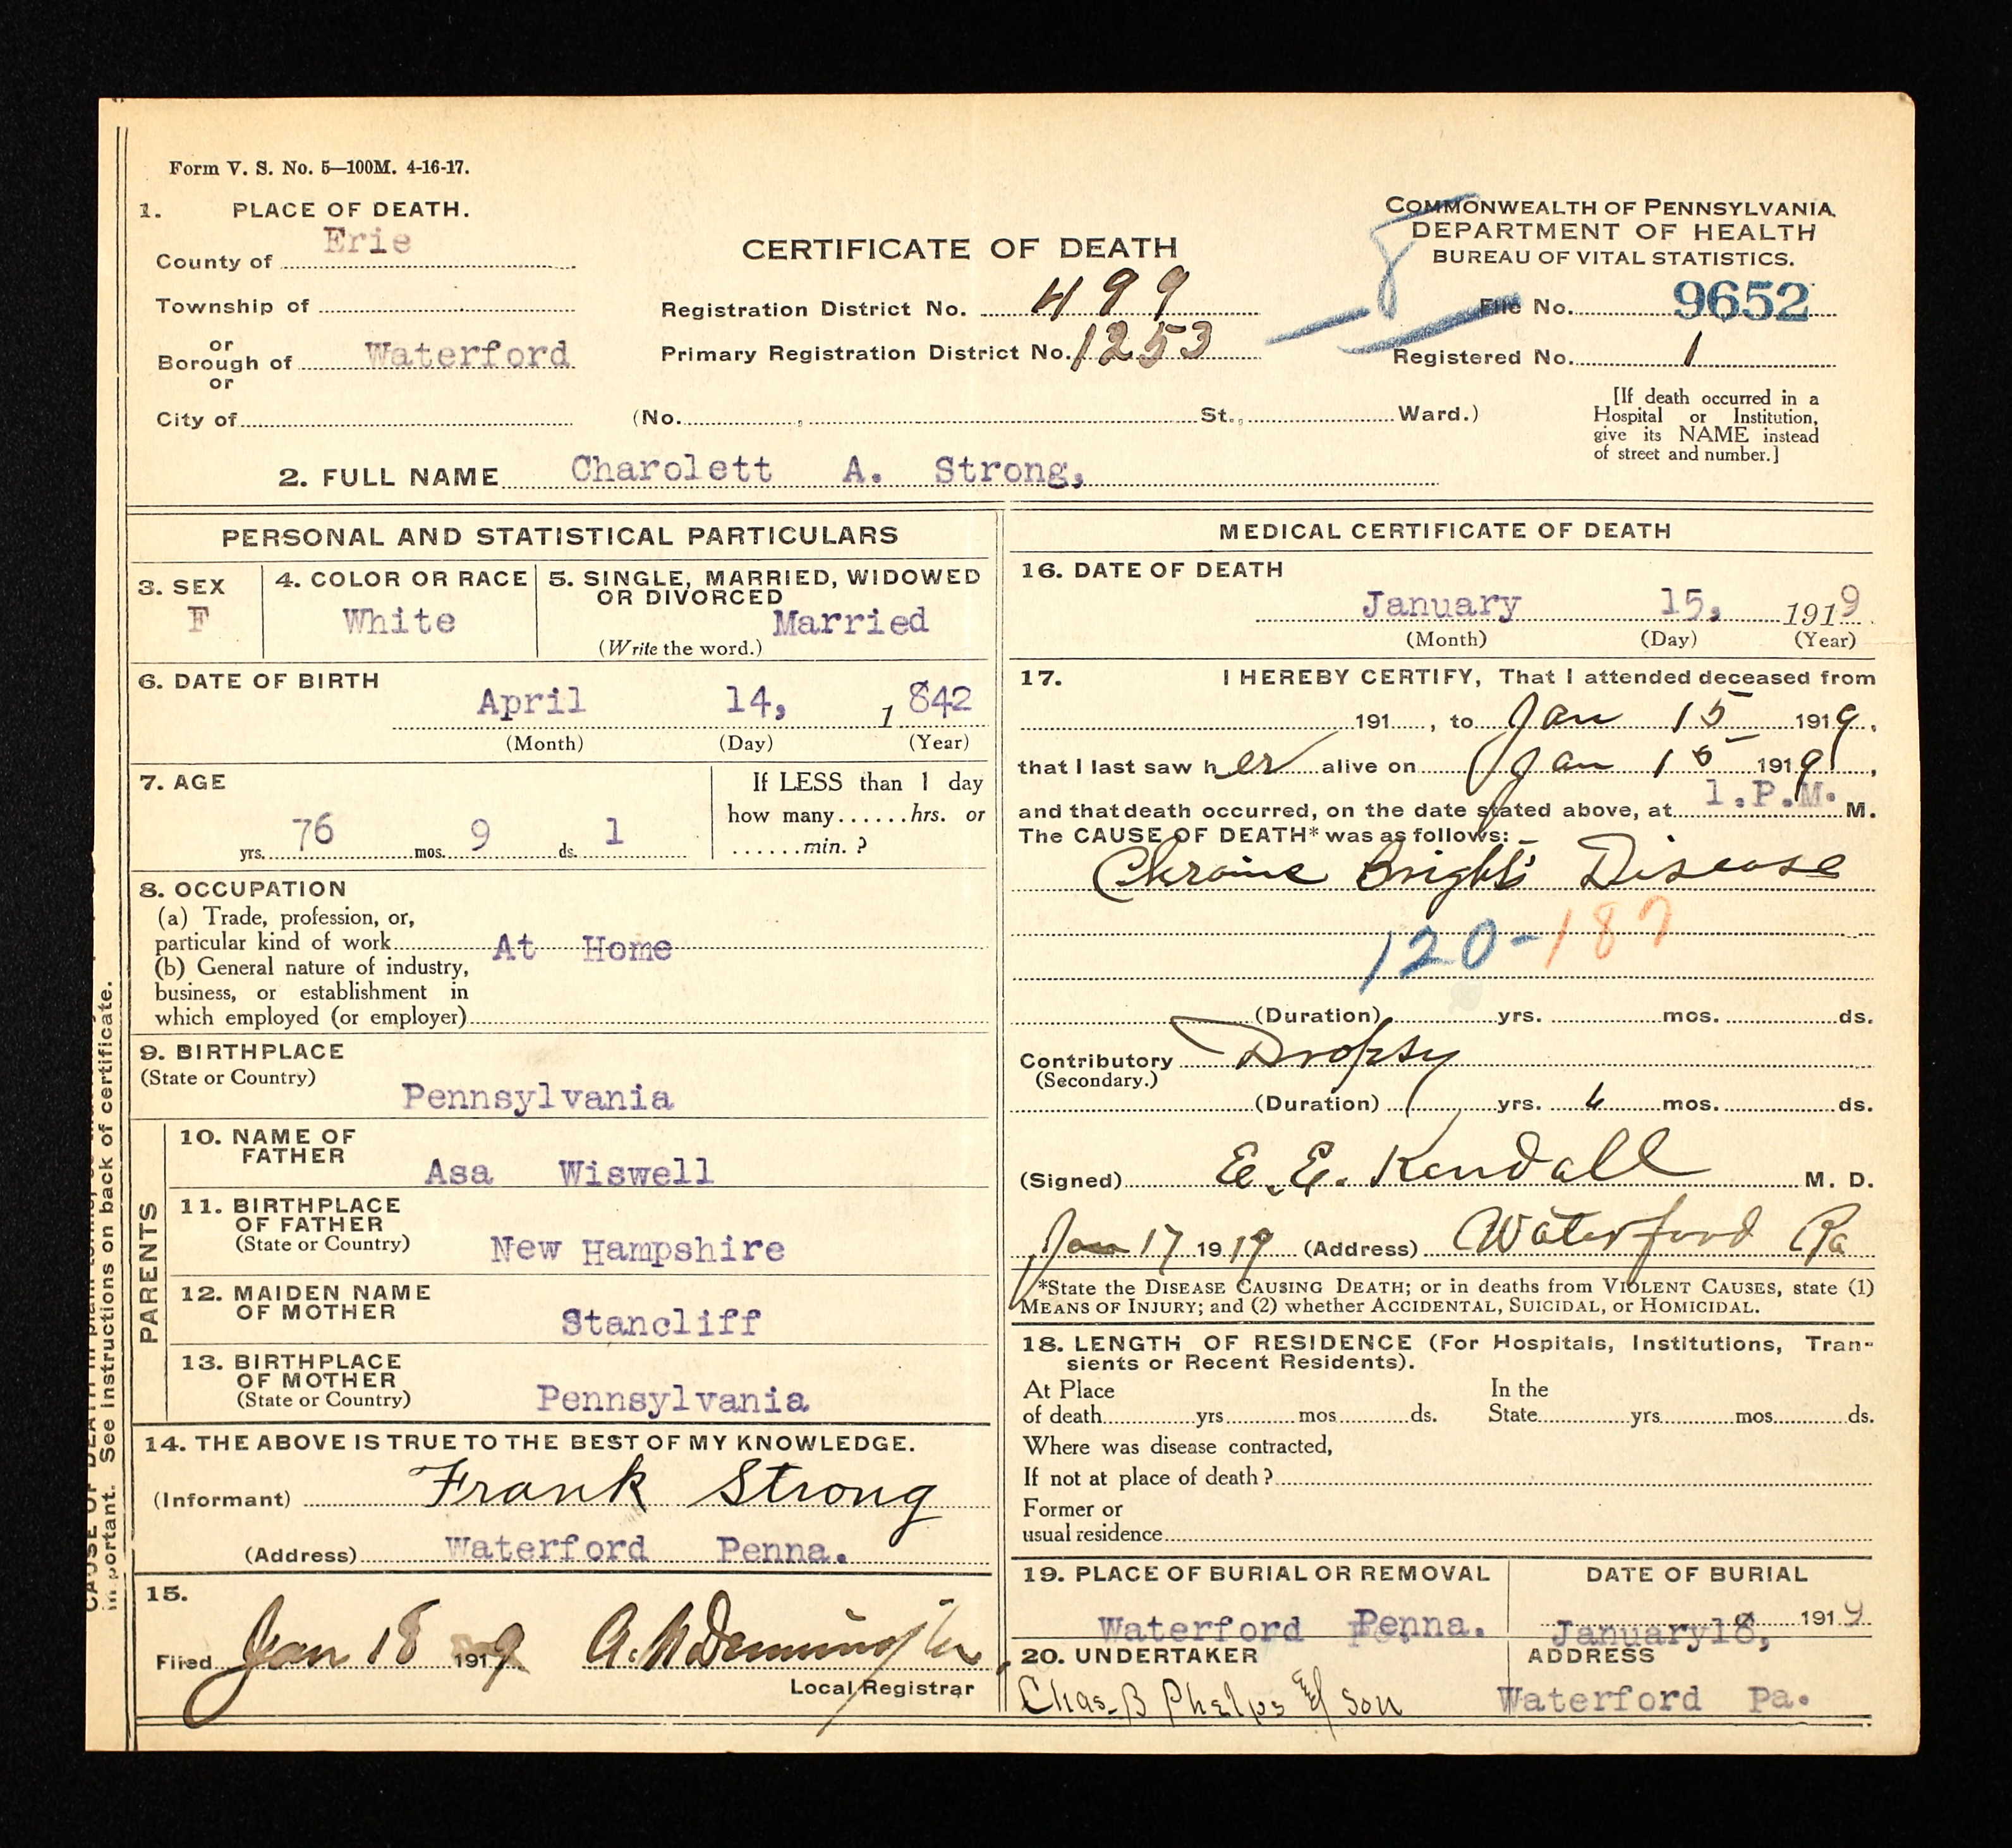 Form V. S. No. 5—100M. 4-16-17.
1. PLACE OF DEATH.
County of Erie
Township of
or
Borough of Waterford
or
City of
CERTIFICATE OF DEATH
Registration District No. 499
Primary Registration District No. 1253
(No. , St., Ward.)
COMMONWEALTH OF PENNSYLVANIA
DEPARTMENT OF HEALTH
BUREAU OF VITAL STATISTICS.
8
File No. 9652
Registered No. 1
[If death occurred in a
Hospital or Institution,
give its NAME instead
of street and number.]
2. FULL NAME Charolett A. Strong,
PERSONAL AND STATISTICAL PARTICULARS
3. SEX
F
4. COLOR OR RACE
White
5. SINGLE, MARRIED, WIDOWED
OR DIVORCED
Married
(Write the word.)
6. DATE OF BIRTH
April 14, 1 842
(Month) (Day) (Year)
7. AGE
76 yrs. 9 mos. 1 ds.
If LESS than 1 day
how many......hrs. or
......min. ?
8. OCCUPATION
(a) Trade, profession, or,
particular kind of work At Home
(b) General nature of industry,
business, or establishment in
which employed (or employer)
9. BIRTHPLACE
(State or Country)
Pennsylvania
PARENTS
10. NAME OF
FATHER
Asa Wiswell
11. BIRTHPLACE
OF FATHER
(State or Country) New Hampshire
12. MAIDEN NAME
OF MOTHER
Stancliff
13. BIRTHPLACE
OF MOTHER
(State or Country) Pennsylvania
14. THE ABOVE IS TRUE TO THE BEST OF MY KNOWLEDGE.
(Informant) Frank Strong
(Address) Waterford Penna.
15.
Filed Jan 18 1919
Local Registrar
MEDICAL CERTIFICATE OF DEATH
16. DATE OF DEATH
January 15, 1919
(Month) (Day) (Year)
17. I HEREBY CERTIFY, That I attended deceased from
191 , to Jan 15 1919,
that I last saw her alive on Jan 15 1919,
and that death occurred, on the date stated above, at 1.P.M. M.
The CAUSE OF DEATH* was as follows:
Chronic Bright's Disease
120-187
(Duration) yrs. mos. ds.
Contributory Dropsy
(Secondary.)
(Duration) yrs. 6 mos. ds.
(Signed) E. E. Kendall M. D.
Jan 17 1919 (Address) Waterford Pa
*State the DISEASE CAUSING DEATH; or in deaths from VIOLENT CAUSES, state (1)
MEANS OF INJURY; and (2) whether ACCIDENTAL, SUICIDAL, or HOMICIDAL.
18. LENGTH OF RESIDENCE (For Hospitals, Institutions, Tran-
sients or Recent Residents).
At Place
of death yrs mos ds.
In the
State yrs mos ds.
Where was disease contracted,
If not at place of death ?
Former or
usual residence
19. PLACE OF BURIAL OR REMOVAL
Waterford Penna.
DATE OF BURIAL
January 18, 1919
20. UNDERTAKER
Chas. B Phelps & Son
ADDRESS
Waterford Pa.
important. See instructions on back of certificate.